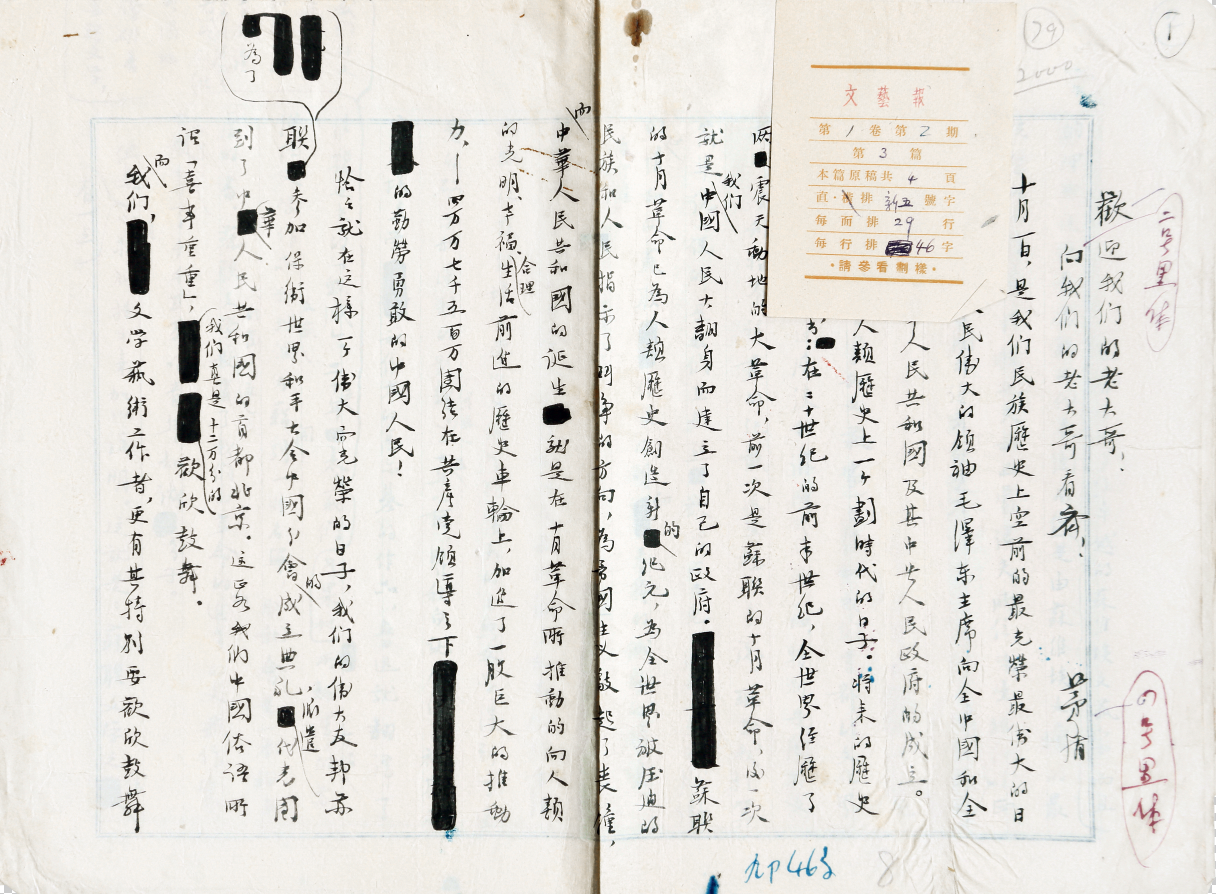 歡迎我们的老大哥，
向我们的老大哥看齐！
茅盾
十月一日，是我们民族歷史上空前的最光榮最偉大的日
民偉大的領袖毛澤东主席向全中國和全
了人民共和國及其中央人民政府的成立。
人類歷史上一个劃時代的日子。將来的歷史
：在二十世紀的前半世紀，全世界经歷了
兩震天動地的大革命，前一次是蘇联的十月革命，後一次
就是我们中國人民大翻身而建立了自己的政府。蘇联
的十月革命已為人類歷史創造新的紀元，為全世界被压迫的
民族和人民指示了鬥争的方向，為帝國主义敲起了丧鐘，
而中華人民共和國的诞生就是在十月革命所推動的向人類
的光明、幸福、合理生活前進的歷史車輪上，加進了一股巨大的推動
力，——四万万七千五百万團结在共產党領導之下
的勤勞勇敢的中國人民！
恰恰就在這樣一个偉大而光榮的日子，我们的偉大友邦苏
联為了参加保衛世界和平大会中國分會的成立典礼，派遣代表團
到了中華人民共和國的首都北京。這正如我们中國俗語所
謂「喜事重重」，我们真是十二万分的歡欣鼓舞。
而我们，文学藝術工作者，更有其特别要歡欣鼓舞
文藝報
第1卷第2期
第3篇
本篇原稿共4頁
直·橫排新五號字
每面排29行
每行排46字
·請參看劃樣·
二号黑体
四号黑体
29
2000
1
九P46多
8